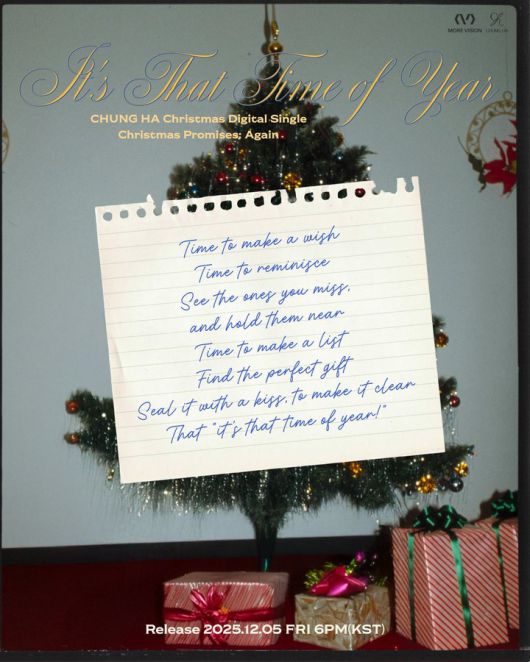 MORE VISION
CHUNG HA
It's That Time of Year
CHUNG HA Christmas Digital Single
Christmas Promises; Again
Time to make a wish
Time to reminisce
See the ones you miss,
and hold them near
Time to make a list
Find the perfect gift
Seal it with a kiss, to make it clear
That "it's that time of year!"
Release 2025.12.05 FRI 6PM(KST)